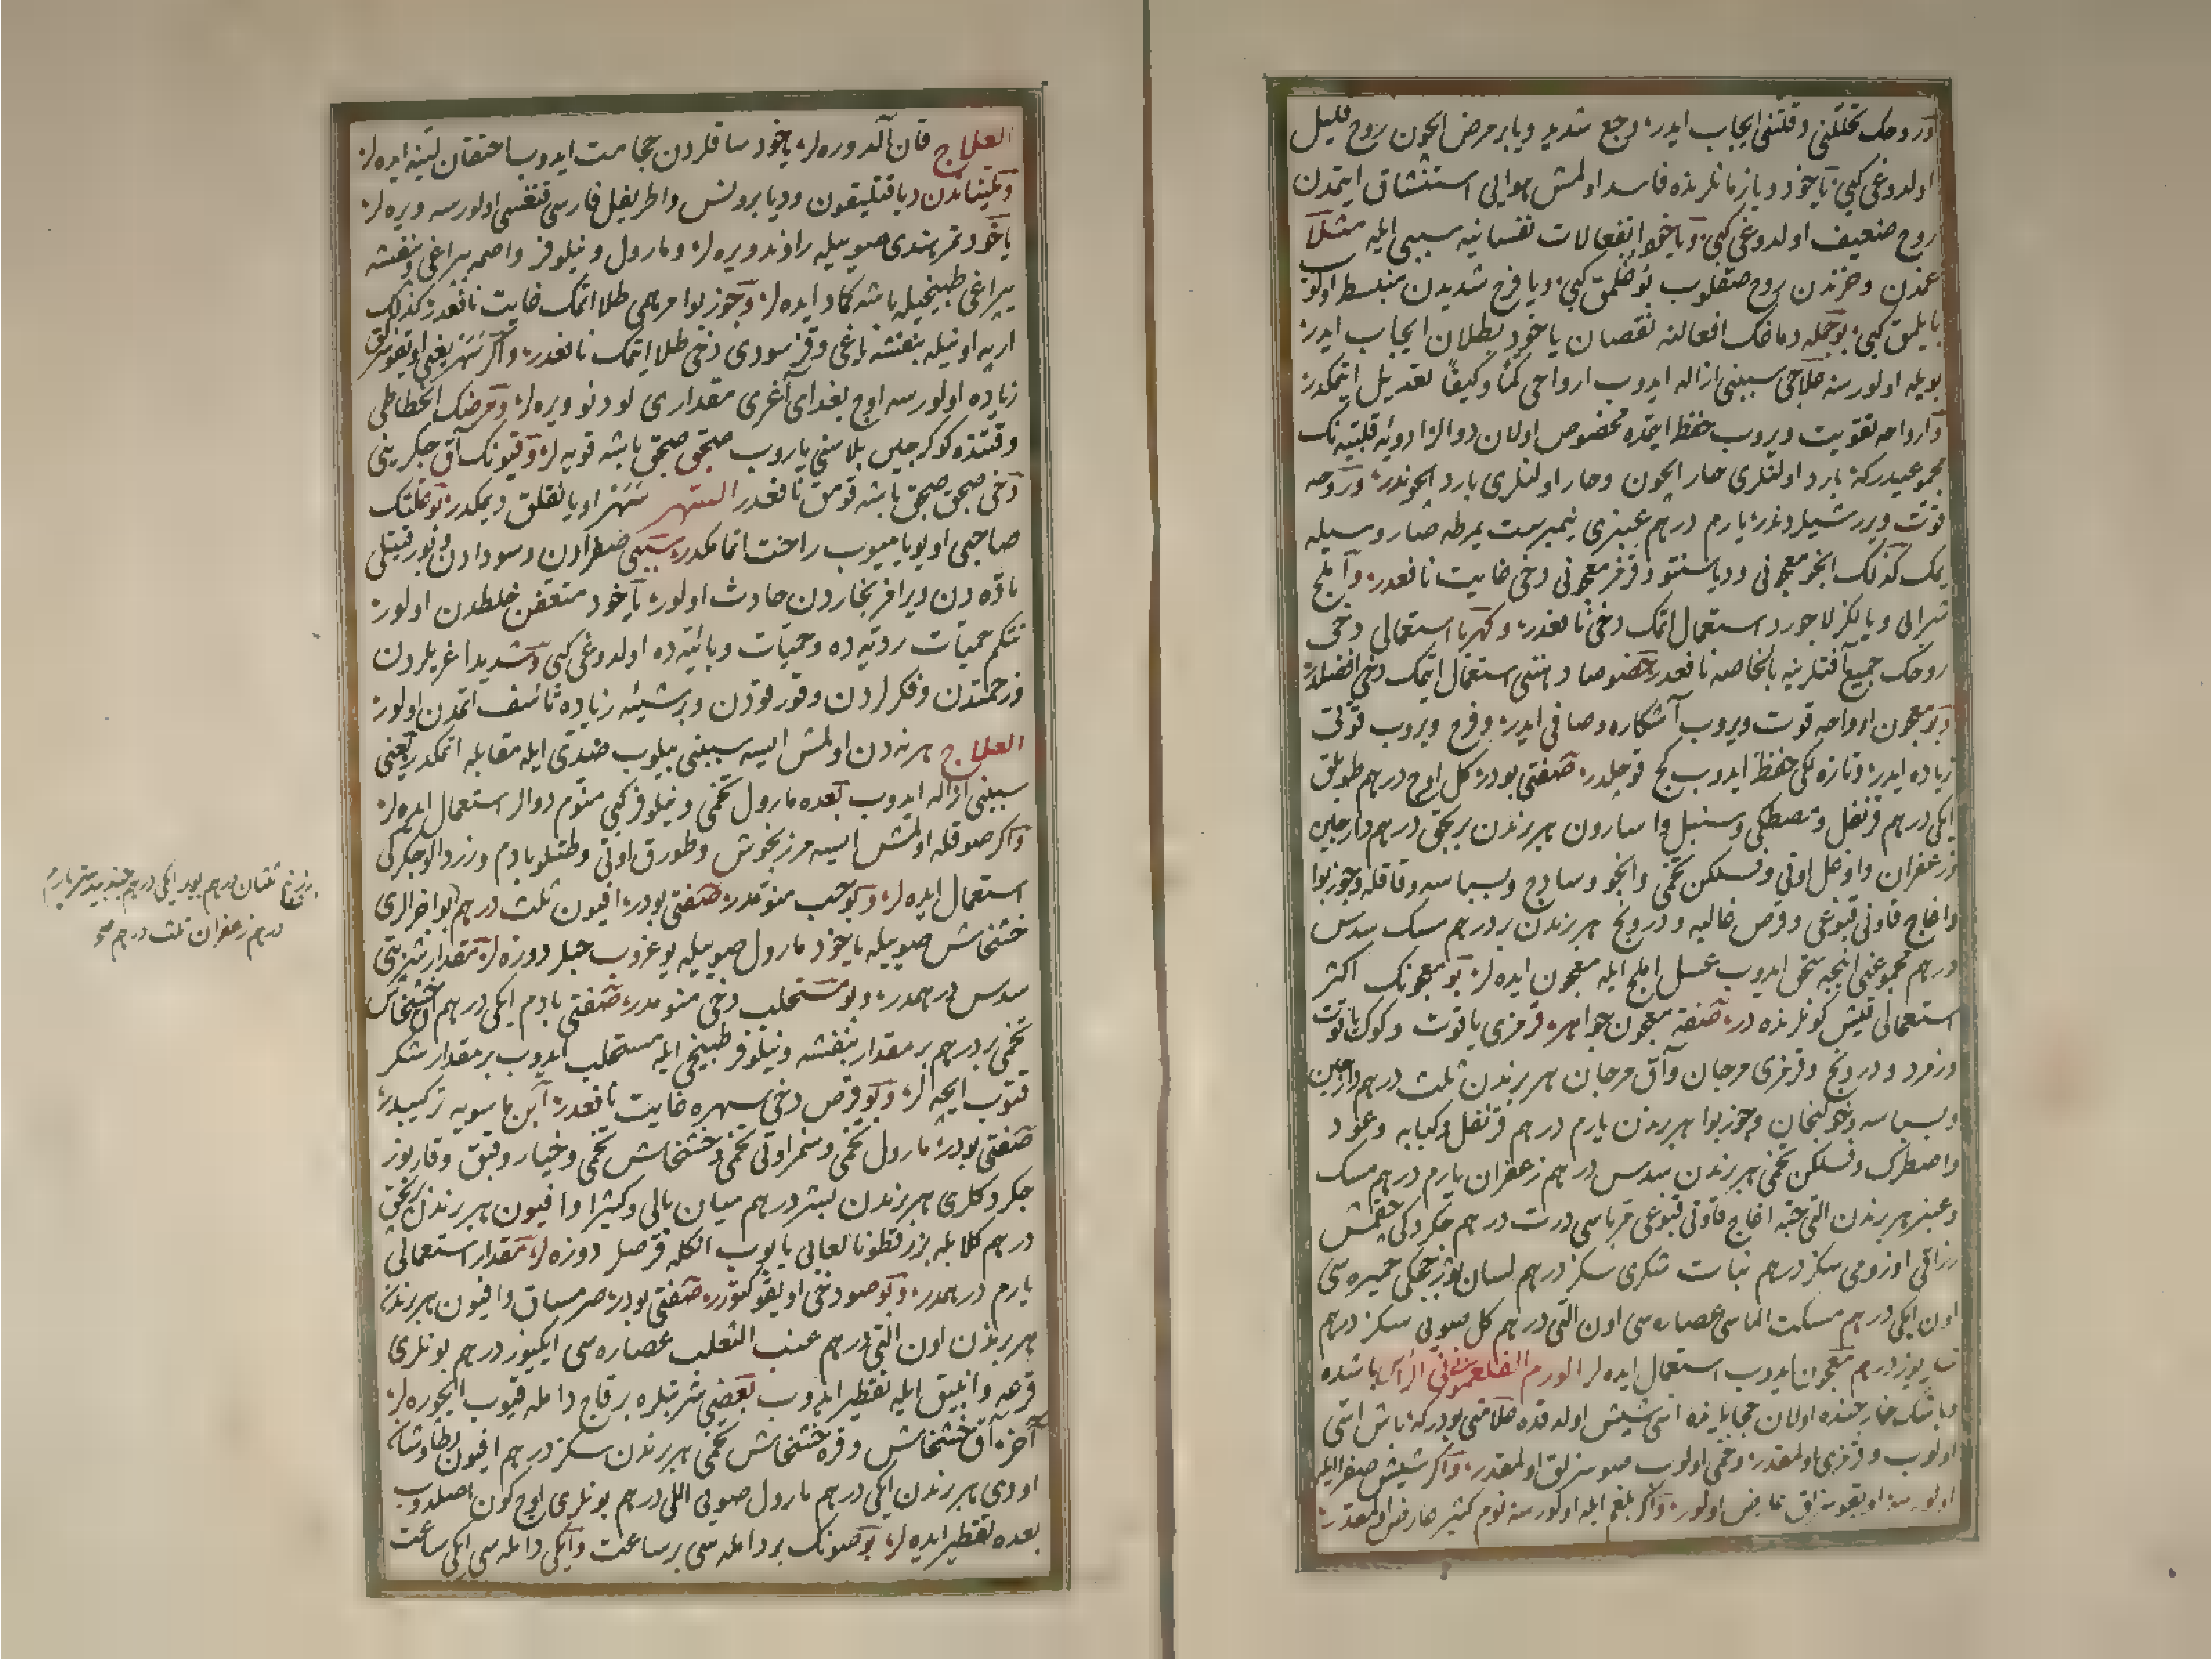 وروحك تحللنی وقلتنی ایجاب ایدر وجع شدید ویا بر مرض ایچون روح قلیل
اولدوغی کبی یاخود ویا زمانلرنده فاسد اولمش هوایی استنشاق ایتمدن
روح ضعیف اولدوغی کبی ویاخود انفعالات نفسانیه سببی ایله مثلا
غمدن وحزندن روح متقلوب بوغلمق کبی ویا فرح شدیدن منبسط اولوب
بایلمق کبی بو جمله دماغك افعالنه نقصان یاخود بطلان ایجاب ایدر
بویله اولورسه علاجی سببنی ازاله ایدوب ارواحی کمًا وکیفًا تعدیل ایتمکدر
وارواحه تقویت ویروب حفظ ایتمده مخصوص اولان دوالر ادویه قلبیه نك
مجموعیدرکه بارد اولنلری حار ایچون وحار اولنلری بارد ایچوندر وروحه
قوت ویرر شیلردندر یارم درهم عنبری نیمبرشت یمرطه صاروسیله
یمك کذلك انجو معجونی ودیاسنتو وقرمز معجونی دخی غایت نافعدر واملج
شرابی ویالکز لاجورد استعمال اتمك دخی نافعدر وکهربا استعمالی دخی
روحك جمیع آفتلرینه بالخاصه نافعدر خصوصا دهننی استعمال اتمك دخی افضلدر
وبو معجون ارواحه قوت ویروب آشکاره وصافی ایدر وفرح ویروب قوتی
زیاده ایدر وتازه لکی حفظ ایدوب کج قوجلدر صفتی بودر کل اوچ درهم طوپلق
ایکی درهم قرنفل ومصطکی وسنبل واسارون هر برندن بر بچق درهم دارچین
وزعفران واوغل اوتی وفسلکن تخمی وانجو وسادج وبسباسه وقاقله وجوزبوا
واغاج قاونی قبوغی وقرص غالیه ودرونج هر برندن بر درهم مسك سدس
درهم مجموعنی اینجه سحق ایدوب عسل املج ایله معجون ایده لر بو معجونك اکثر
استعمالی قیش کونلرنده در صفة معجون جواهر قرمزی یاقوت وکوك یاقوت
وزمرد ودرونج وقرمزی مرجان وآق مرجان هر برندن ثلث درهم دارچین
وبسباسه وخولنجان وجوزبوا هر برندن یارم درهم قرنفل وکبابه وعود
واصطرك وفسلکن تخمی هر برندن سدس درهم زعفران یارم درهم مسك
وعنبر هر برندن التی حبه اغاج قاونی قبوغی مرباسی درت درهم چکردکی چقمش
رزاقی اوزومی سکز درهم نبات شکری سکز درهم لسان ثور چیچکی خمیره سی
اون ایکی درهم مسکت الماسی عصاره سی اون التی درهم کل صویی سکز درهم
یوز درهم معجون ایدوب استعمال ایده لر الورم الفلغمونی فی الرأس باشده
وباشك خارجنده اولان حجابلرنده اسی شیش اولدقده علامتی بودرکه باش اسی
اولوب وقرمزی اولمقدر وحمی اولوب صوسزلق اولمقدر واکر شیش صفرا ایله
اولورسه اویقوسزلق عارض اولور واکر بلغم ایله اولورسه نوم کثیر عارض اولمقدر
العلاج قان آلدوره لر یاخود ساقلردن حجامت ایدوب احتقان لینه ایده لر
وملیناتدن دیاقتلیقون ودیابرونس واطریفل فارسی قنغسی اولورسه ویره لر
یاخود تمر هندی صویيله راوند ویره لر ومارول ونیلوفر واصمه یپراغی وبنفشه
یپراغی طبیخیله باشه کماد ایده لر وجوزبوا مرهمی طلا اتمك غایت نافعدر کذلك
ارپه اونیله بنفشه یاغی وقز سودی دخی طلا ایتمك نافعدر واکر سهر یعنی اویقوسزلق
زیاده اولورسه اوچ بغدای آغری مقداری لودنو ویره لر ومرضك انحطاطی
وقتنده کوکرجین بلاسنی یاروب صجق صجق باشه قویه لر وقیونك آق جکرینی
دخی صجق صجق باشه قومق نافعدر السهر سهر اویانقلق دیمکدر بو علتك
صاحبی اویویامیوب راحت اتمامکدر سببی صفرادن وسودادن وبورقیتلی
ماده دن ویرافر بخاردن حادث اولور یاخود متعفن خلطدن اولور
نتکم حمیات ردیه ده وحمیات وبائیه ده اولدوغی کبی وشدید اغریلردن
وزحمتدن وفکرلردن وقورقودن وبر شیئه زیاده تأسف اتمدن اولور
العلاج هر نه دن اولمش ایسه سببنی بیلوب ضدی ایله مقابله اتمکدر یعنی
سببنی ازاله ایدوب بعده مارول تخمی ونیلوفر کبی منوم دوالر استعمال ایده لر
واکر صوقله اولمش ایسه مرزنجوش وطورق اوتی وطتلو بادم وزردالو جکرکی
استعمال ایده لر وبو حب منومدر صفتی بودر افیون ثلث درهم بو اخرالری
خشخاش صویيله یاخود مارول صویيله یوغروب حبلر دوزه لر مقدار شربتی
سدس درهمدر وبو مستحلب دخی منومدر صفتی بادم ایکی درهم آق خشخاش
تخمی بر درهم بر مقدار بنفشه ونیلوفر طبیخی ایله مستحلب ایدوب بر مقدار شکر
قتوب ایچه لر وبو قرص دخی سهره غایت نافعدر ابن ماسویه ترکیبیدر
صفتی بودر مارول تخمی وسمز اوتی تخمی وخشخاش تخمی وخیار وقبق وقارپوز
چکردکلری هر برندن بشر درهم میان بالی وکثیرا وافیون هر برندن بر بچق
درهم کلابله بزر قطونا لعابی یاپوب انکله قرصلر دوزه لر مقدار استعمالی
یارم درهمدر وبو صو دخی اویقو کتورر صفتی بودر صرمساق وافیون هر برندن
هر برندن اون التی درهم عنب الثعلب عصاره سی ایکیوز درهم بونلری
قرعه وانبیق ایله تقطیر ایدوب بعضی شربتلره بر قاج دامله قیوب ایچوره لر
آخر آق خشخاش وقره خشخاش تخمی هر برندن سکز درهم افیون بطاوشانه
اودی هر برندن ایکی درهم مارول صویی اللی درهم بونلری اوچ کون اصلدوب
بعده تقطیر ایده لر بو صونك بر دامله سی بر ساعت وایکی دامله سی ایکی ساعت
ثلثان درهم ایکی درهم جندبیدستر یارم
درهم زعفران ثلث درهم صح